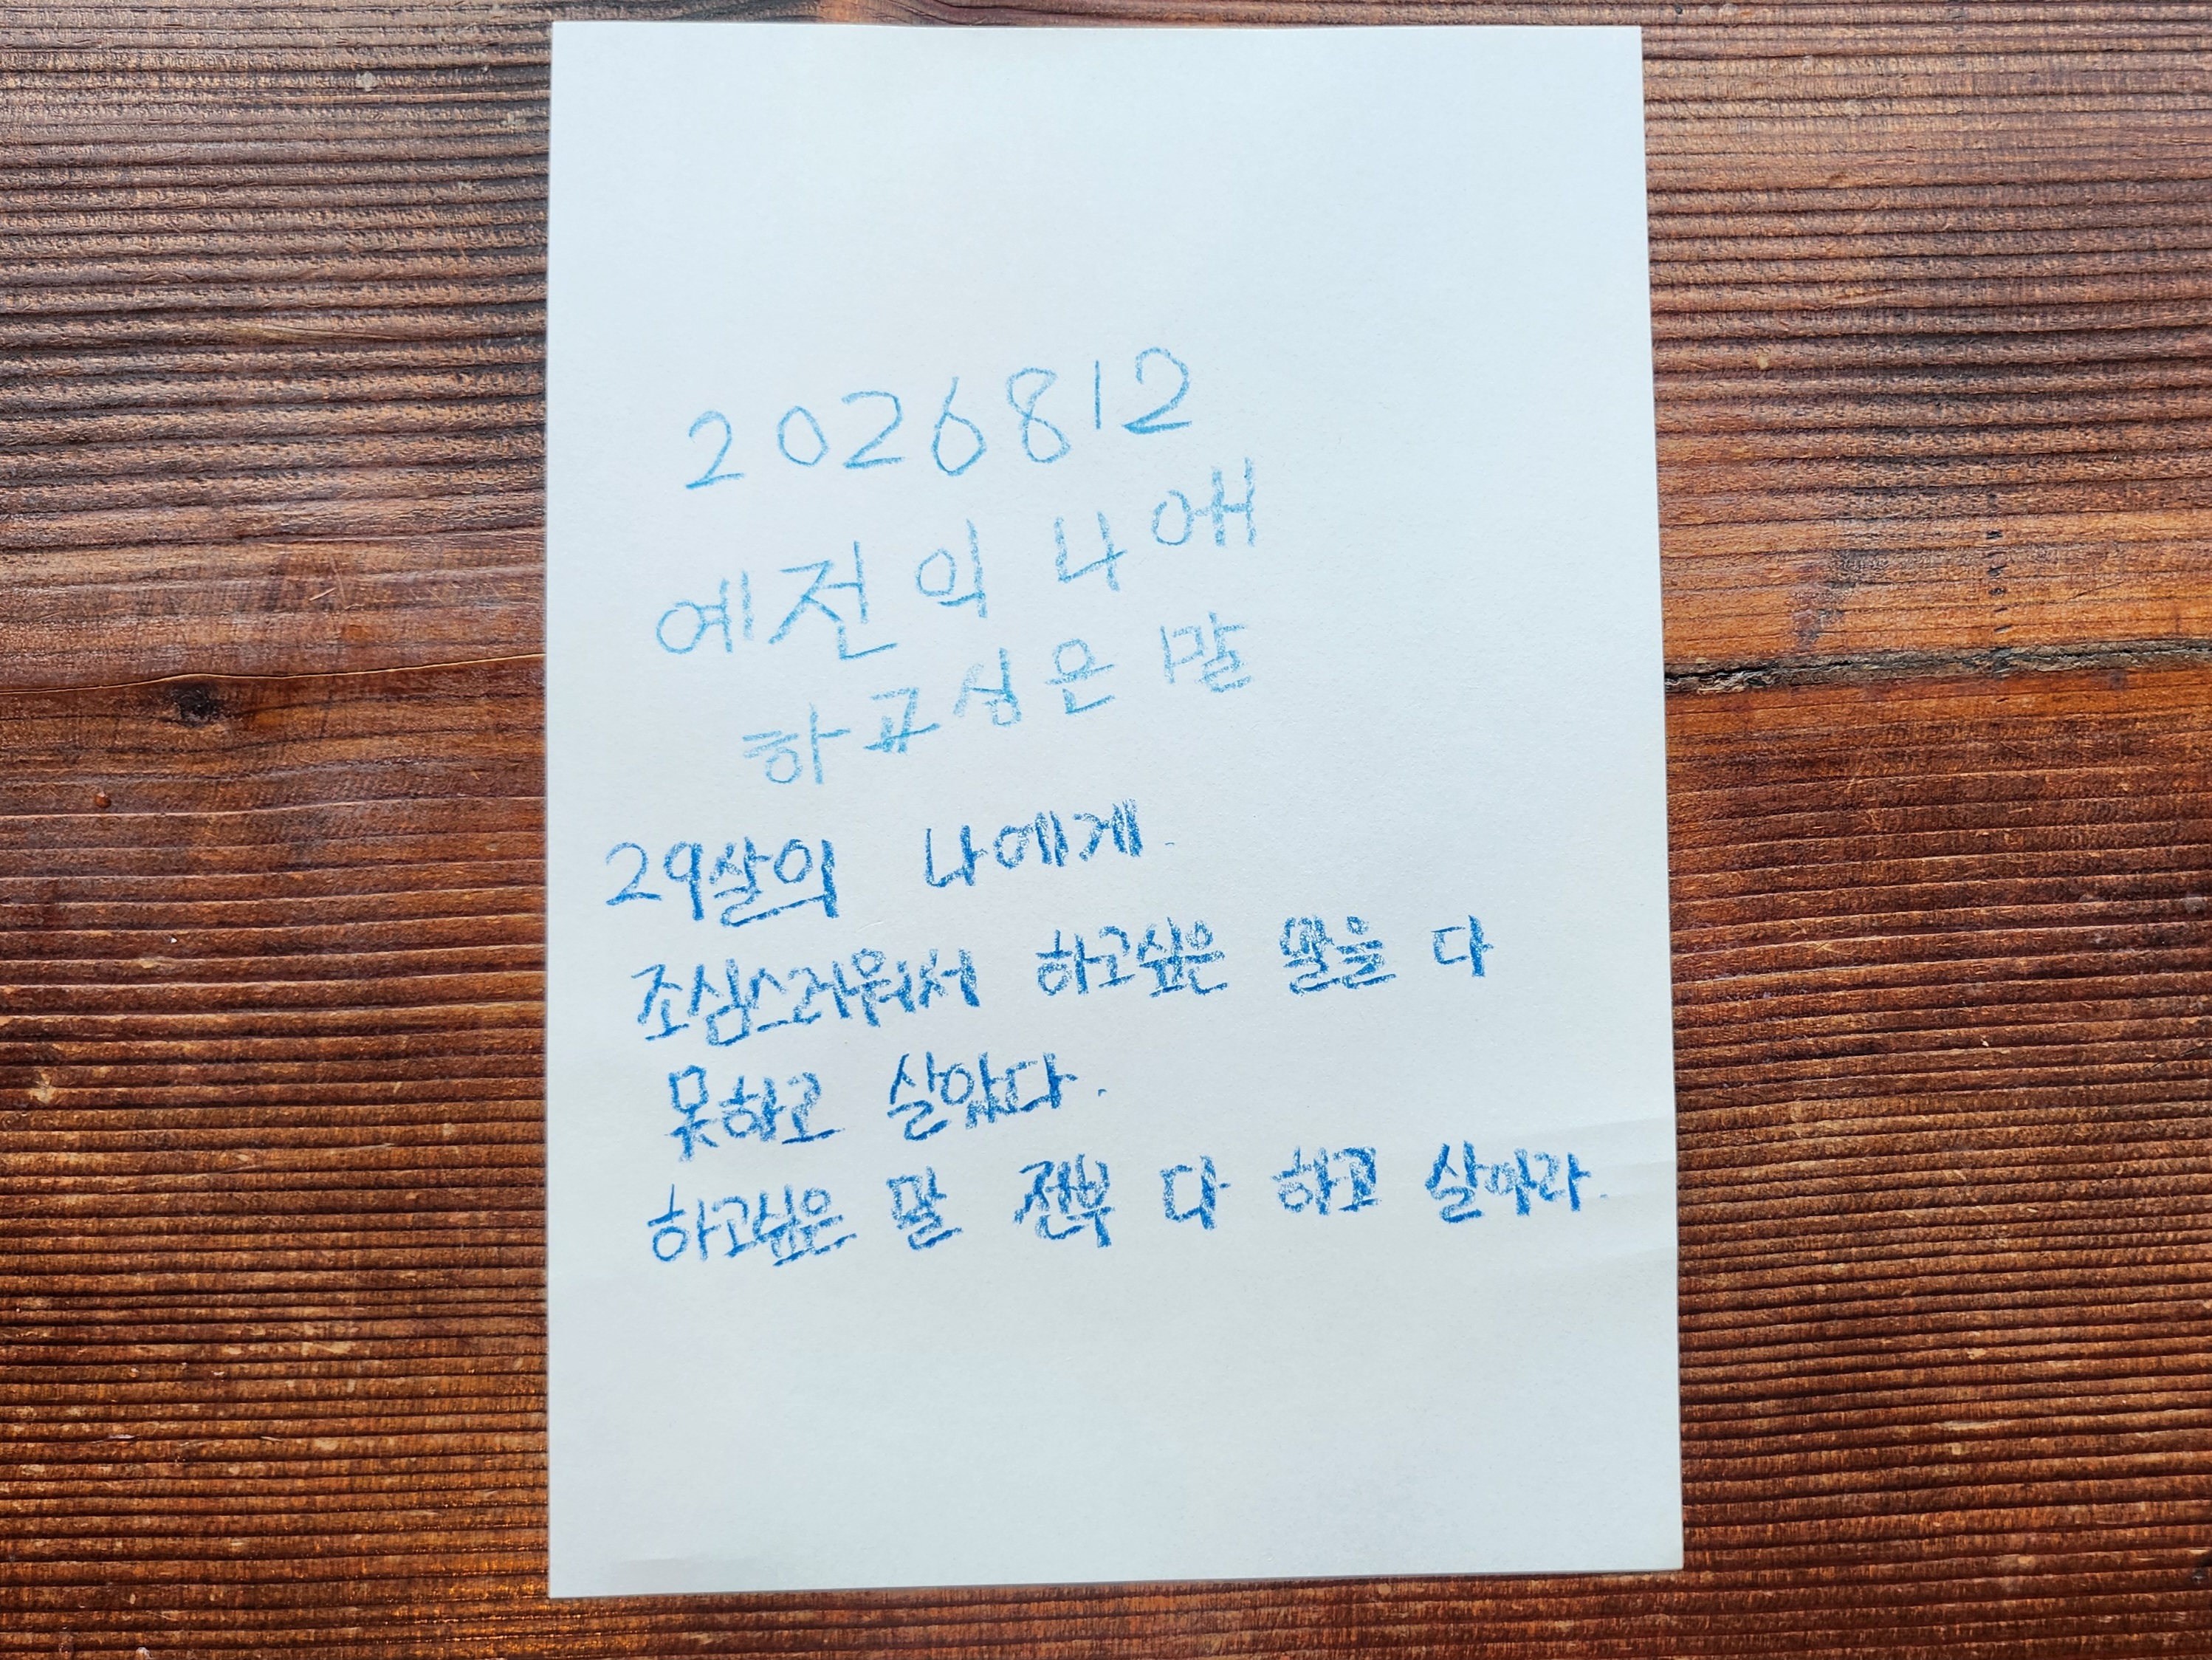 2026812
예전의 나애
하고싶은 말
29살의 나에게.
조심스러워서 하고싶은 말을 다
못하고 살았다.
하고싶은 말 전부 다 하고 살아라.